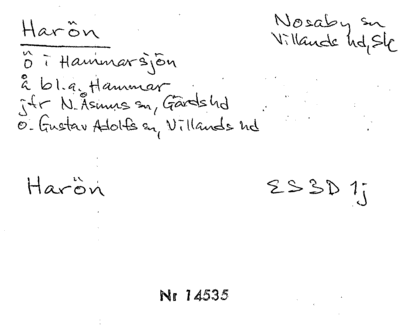 Harön
Nosaby sn
Villands hd, Sk
ö i Hammarsjön
å bl.a. Hammar
jfr N. Åsums sn, Gärds hd
o. Gustav Adolfs sn, Villands hd
Harön
ES3D 1j
Nr 14535